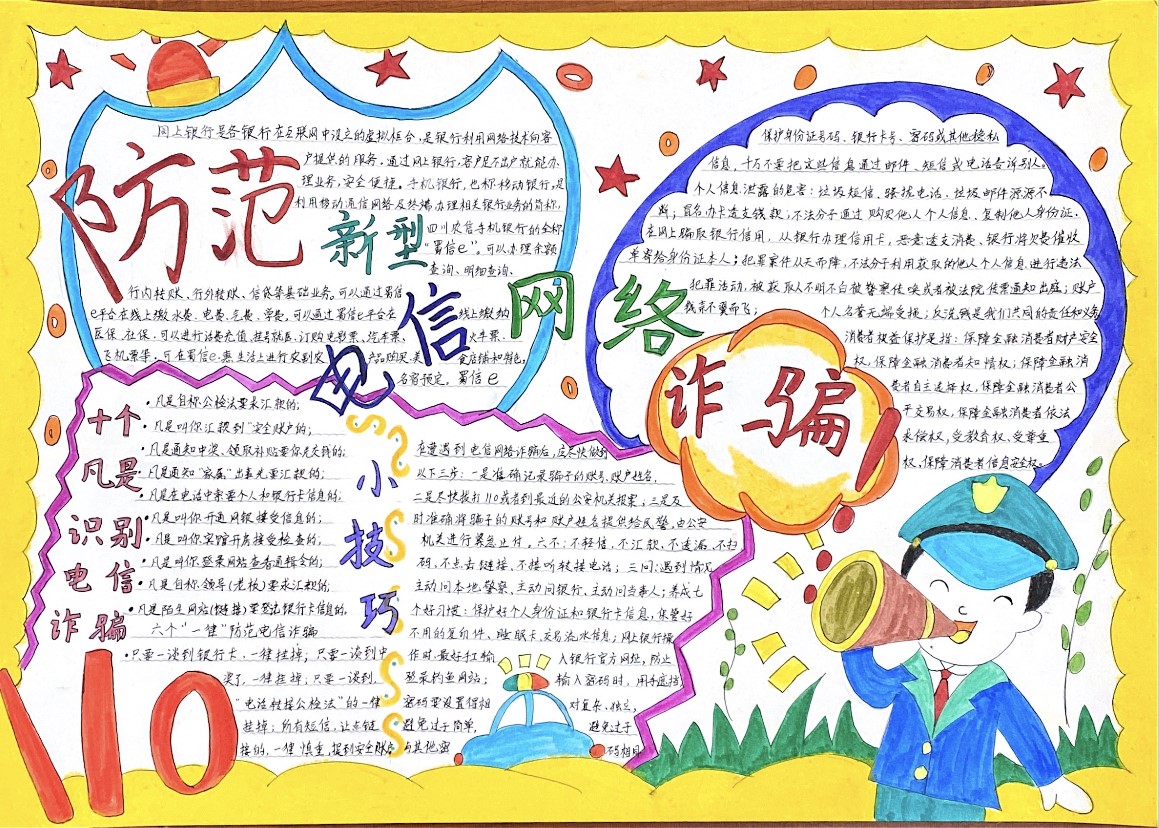 防范
新型
电信
网络
诈骗
网上银行是各银行在互联网中设立的虚拟柜台,是银行利用网络技术向客
户提供的服务,通过网上银行,客户足不出户就能办
理业务,安全便捷。手机银行,也称移动银行,是
利用移动通信网络及终端办理相关银行业务的简称,
四川农信手机银行的全称
“蜀信e”。可以办理余额
查询、明细查询、
行内转账、行外转账、信贷等基础业务。可以通过蜀信
e平台在线上缴水费、电费、气费、学费,可以通过蜀信e平台在线上缴纳
医保、社保,可以进行话费充值,挂号就医,订购电影票、汽车票、火车票、
飞机票等,可在蜀信e·惠生活上进行农副产品购买,美食店铺和特色,
名宿预定,蜀信e
保护身份证号码、银行卡号、密码或其他私
信息,千万不要把这些信息通过邮件、短信或电话告诉别人。
个人信息泄露的危害:垃圾短信、骚扰电话、垃圾邮件源源不
断;冒名办卡透支钱款;不法分子通过购买他人个人信息、复制他人身份证,
在网上骗取银行信用,从银行办理信用卡,恶意透支消费、银行将欠费催收
单寄给身份证本人;犯罪案件从天而降,不法分子利用获取的他人个人信息进行违法
犯罪活动,被获取人不明不白被警察传唤或者被法院传票通知出庭;账户
钱款不翼而飞;个人名誉无端受损;反洗钱是我们共同的责任和义务
消费者权益保护是指:保障金融消费者财产安全
权,保障金融消费者知情权;保障金融消
费者自主选择权,保障金融消费者公
平交易权,保障金融消费者依法
求偿权,受教育权、受尊重
权,保障金融消费者信息安全权。
十个
凡是
识别
电信
诈骗
·凡是自称公检法要求汇款的;
·凡是叫你汇款到“安全账户的;
·凡是通知中奖、领取补贴要你先交钱的;
·凡是通知“家属”出事先要汇款的;
·凡是在电话中索要个人和银行卡信息的;
·凡是叫你开通网银接受信息的;
·凡是叫你宾馆开房接受检查的;
·凡是叫你登录网站查看通辑令的;
·凡是自称领导(老板)要求汇款的;
·凡是陌生网站(链接)要登记银行卡信息的。
六个“一律”防范电信诈骗
·只要一谈到银行卡,一律挂掉;只要一谈到中
奖了,一律挂掉;只要一谈到
“电话转接公检法”的一律
挂掉;所有短信,让点链
接的,一律慎重,提到安全账户
小
技
巧
在遭遇到电信网络诈骗后,应尽快做到
以下三步:一是准确记录骗子的账号、账户姓名,
二是尽快拨打110或者到最近的公安机关报案;三是及
时准确将骗子的账号和账户姓名提供给民警,由公安
机关进行紧急止付。六不:不轻信,不汇款,不透漏,不扫
码,不点击链接、不接听转接电话;三问:遇到情况
主动问本地警察、主动问银行、主动问当事人;养成七
个好习惯:保护好个人身份证和银行卡信息,保管好
不用的复印件、睡眠卡、交易流水信息;网上银行操
作时,最好手工输入银行官方网址,防止
登录钓鱼网站;输入密码时,用手遮挡;
密码要设置得相对复杂、独立,
避免过于简单,避免过于
与其他密码相同
110